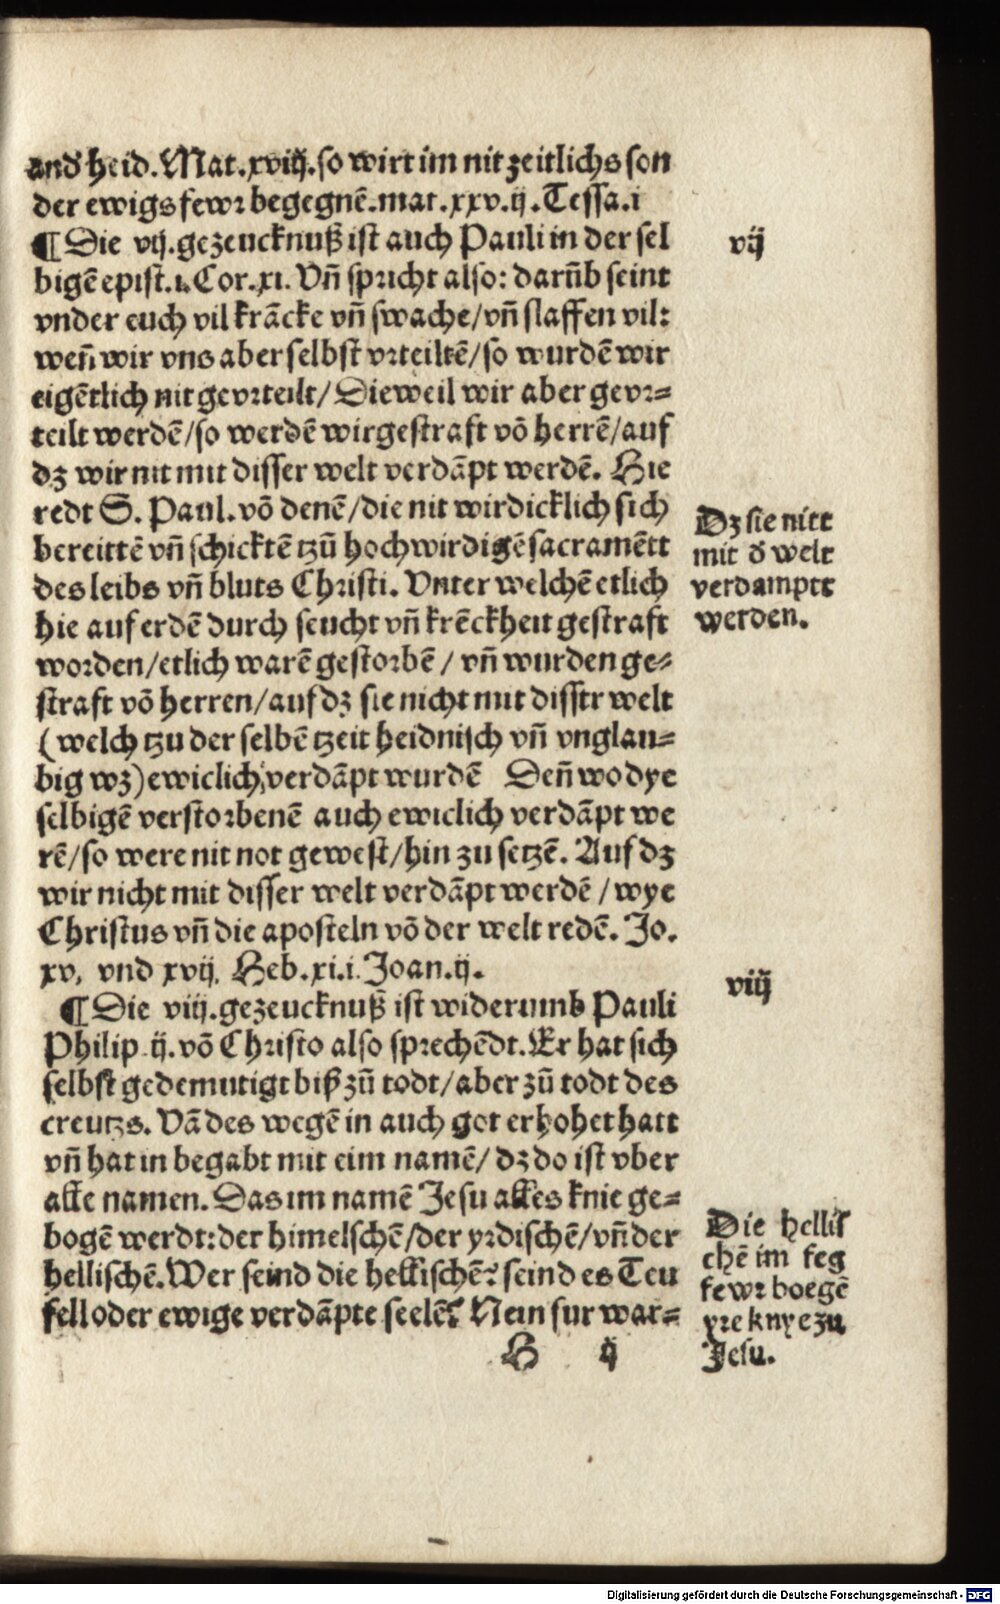 and' heid. Mat. xviij. so wirt im nit zeitlichs son
der ewigs fewr begegnē. mat. xxv. ij. Tessa. i
¶ Die vij. gezeucknuß ist auch Pauli in der sel
bigē epist. i. Cor. xi. Vñ spricht also: darūb seint
vnder euch vil krācke vñ swache/vñ slaffen vil:
weñ wir vns aber selbst vrteiltē/so wurdē wir
eigētlich nit gevrteilt/Dieweil wir aber gevr=
teilt werdē/so werdē wir gestraft vō herrē/auf
dz wir nit mit disser welt verdāpt werdē. Hie
redt S. Paul. vō denē/die nit wirdicklich sich
bereittē vñ schicktē tzū hochwirdigē sacramētt
des leibs vñ bluts Christi. Vnter welchē etlich
hie auf erdē durch seucht vñ krēckheit gestraft
worden/etlich warē gestorbē / vñ wurden ge=
straft vō herren/auf dz sie nicht mit disstr welt
(welch tzu der selbē tzeit heidnisch vñ vnglau=
big wz) ewiclich verdāpt wurdē Deñ wo dye
selbigē verstorbenē auch ewiclich verdāpt we
rē/so were nit not gewest/hin zu setzē. Auf dz
wir nicht mit disser welt verdāpt werdē / wye
Christus vñ die aposteln vō der welt redē. Jo.
xv, vnd xvij. Heb. xi. i. Joan. ij.
¶ Die viij. gezeucknuß ist widerumb Pauli
Philip. ij. vō Christo also sprechēdt. Er hat sich
selbst gedemutigt biß zū todt/aber zū todt des
creutzs. Vā des wegē in auch got erhohet hatt
vñ hat in begabt mit eim namē/ dz do ist vber
alle namen. Das im namē Jesu alles knie ge=
bogē werdt: der himelschē/der yrdischē/vñ der
hellischē. Wer seind die hellischē? seind es Teu
fell oder ewige verdāpte seelē? Nein fur war=
H ij
vij
Dz sie nitt
mit d' welt
verdamptt
werden.
viij
Die hellis
chē im feg
fewr boegē
yre knye zu
Jesu.
Digitalisierung gefördert durch die Deutsche Forschungsgemeinschaft - DFG